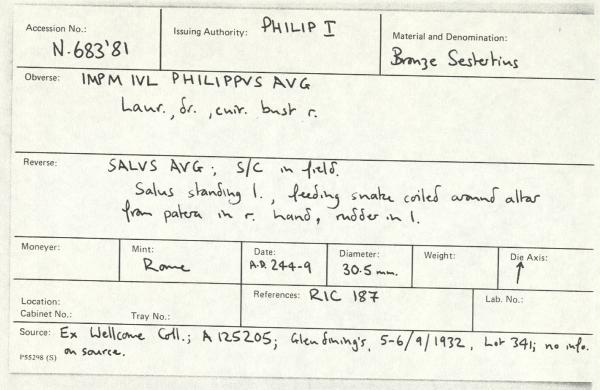 Accession No.: N.683'81
Issuing Authority: PHILIP I
Material and Denomination: Bronze Sestertius
Obverse: IMP M IVL PHILIPPVS AVG
Laur., dr., cuir. bust r.
Reverse: SALVS AVG; S/C in field.
Salus standing l., feeding snake coiled around altar
from patera in r. hand, rudder in l.
Moneyer:
Mint: Rome
Date: A.D. 244-9
Diameter: 30.5 mm.
Weight:
Die Axis: ↑
Location:
Cabinet No.:
Tray No.:
References: RIC 187
Lab. No.:
Source: Ex Wellcome Coll.; A125205; Glendining's, 5-6/9/1932, Lot 341; no info.
on source.
P55298 (S)